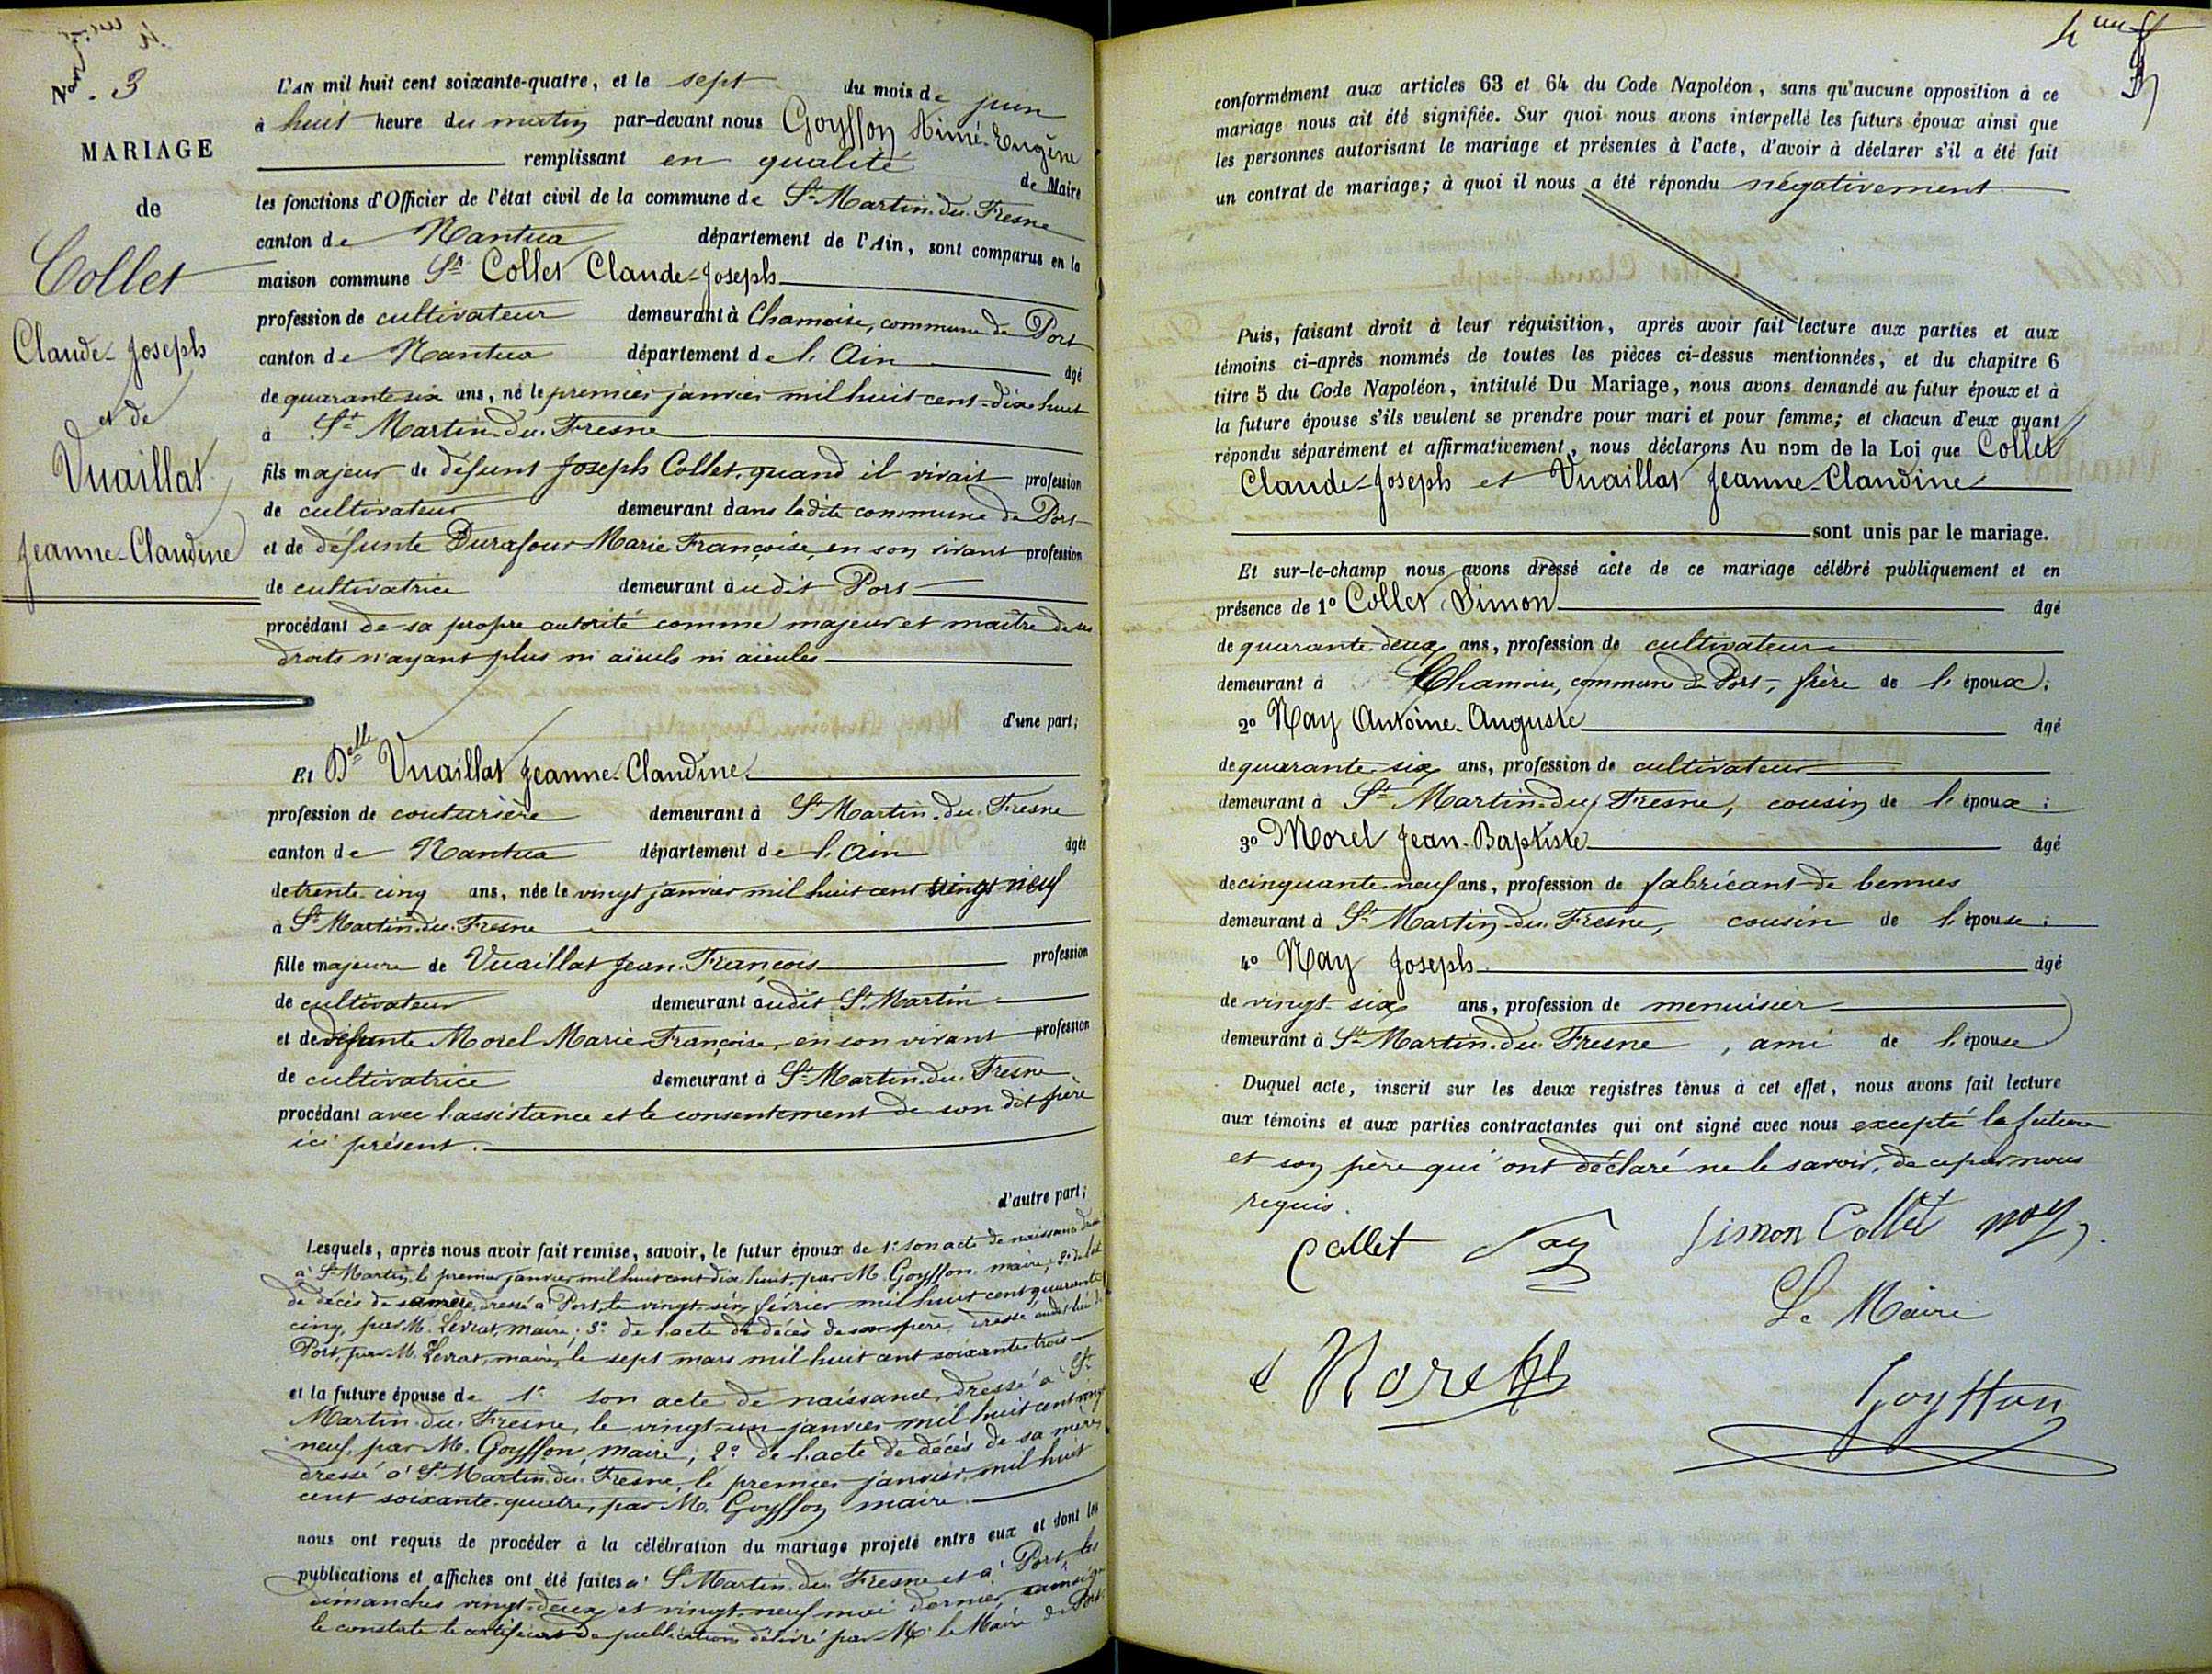 N° 3
MARIAGE
de
Collet
Claude-Joseph
et de
Vuaillat
Jeanne-Claudine
L'AN mil huit cent soixante-quatre, et le sept du mois de juin
à huit heure du matin par-devant nous Goyffon Aimé-Eugène
remplissant en qualité de Maire
les fonctions d'Officier de l'état civil de la commune de St Martin-du-Fresne
canton de Nantua département de l'Ain, sont comparus en la
maison commune Sr Collet Claude-Joseph
profession de cultivateur demeurant à Chamoise, commune de Port
canton de Nantua département de l'Ain âgé
de quarante six ans, né le premier janvier mil huit cent dix huit
à St Martin-du-Fresne
fils majeur de défunt Joseph Collet, quand il vivait profession
de cultivateur demeurant dans ladite commune de Port
et de défunte Durafour Marie Françoise, en son vivant profession
de cultivatrice demeurant audit Port
procédant de sa propre autorité comme majeur et maître de ses
droits n'ayant plus ni aïeuls ni aïeules
d'une part;
Et Delle Vuaillat Jeanne-Claudine
profession de couturière demeurant à St Martin-du-Fresne
canton de Nantua département de l'Ain âgée
de trente-cinq ans, née le vingt janvier mil huit cent vingt neuf
à St Martin-du-Fresne
fille majeure de Vuaillat Jean-François profession
de cultivateur demeurant audit St Martin
et de défunte Morel Marie-Françoise, en son vivant profession
de cultivatrice demeurant à St Martin-du-Fresne
procédant avec l'assistance et le consentement de son dit père
ici présent.
d'autre part;
Lesquels, après nous avoir fait remise, savoir, le futur époux de 1° son acte de naissance dressé
à St Martin, le premier janvier mil huit cent dix huit, par M. Goyffon, maire; 2° de l'acte
de décès de sa mère, dressé à Port, le vingt-six février mil huit cent quarante
cinq, par M. Levrat, maire; 3° de l'acte de décès de son père, dressé audit lieu de
Port, par M. Levrat, maire, le sept mars mil huit cent soixante-trois
et la future épouse de 1° son acte de naissance, dressé à St
Martin-du-Fresne, le vingt-un janvier mil huit cent vingt
neuf, par M. Goyffon, maire; 2° de l'acte de décès de sa mère,
dressé à St Martin-du-Fresne, le premier janvier mil huit
cent soixante-quatre, par M. Goyffon maire
nous ont requis de procéder à la célébration du mariage projeté entre eux et dont les
publications et affiches ont été faites à St Martin-du-Fresne et à Port, les
dimanches vingt-deux et vingt-neuf mai dernier, ainsi que
le constate le certificat de publication délivré par M. le Maire de Port
conformément aux articles 63 et 64 du Code Napoléon, sans qu'aucune opposition à ce
mariage nous ait été signifiée. Sur quoi nous avons interpellé les futurs époux ainsi que
les personnes autorisant le mariage et présentes à l'acte, d'avoir à déclarer s'il a été fait
un contrat de mariage; à quoi il nous a été répondu négativement
Puis, faisant droit à leur réquisition, après avoir fait lecture aux parties et aux
témoins ci-après nommés de toutes les pièces ci-dessus mentionnées, et du chapitre 6
titre 5 du Code Napoléon, intitulé Du Mariage, nous avons demandé au futur époux et à
la future épouse s'ils veulent se prendre pour mari et pour femme; et chacun d'eux ayant
répondu séparément et affirmativement, nous déclarons Au nom de la Loi que Collet
Claude-Joseph et Vuaillat Jeanne-Claudine
sont unis par le mariage.
Et sur-le-champ nous avons dressé acte de ce mariage célébré publiquement et en
présence de 1° Collet Simon âgé
de quarante-deux ans, profession de cultivateur
demeurant à Chamoise, commune de Port, frère de l'époux;
2° Nay Antoine-Auguste âgé
de quarante six ans, profession de cultivateur
demeurant à St Martin-du-Fresne, cousin de l'époux;
3° Morel Jean-Baptiste âgé
de cinquante-neuf ans, profession de fabricant de bennes
demeurant à St Martin-du-Fresne, cousin de l'épouse;
4° Nay Joseph âgé
de vingt-six ans, profession de menuisier
demeurant à St Martin-du-Fresne, ami de l'épouse
Duquel acte, inscrit sur les deux registres tenus à cet effet, nous avons fait lecture
aux témoins et aux parties contractantes qui ont signé avec nous excepté la future
et son père qui ont déclaré ne le savoir, de ce par nous
requis.
Collet Nay Simon Collet nay
Le Maire
Morel
Goyffon